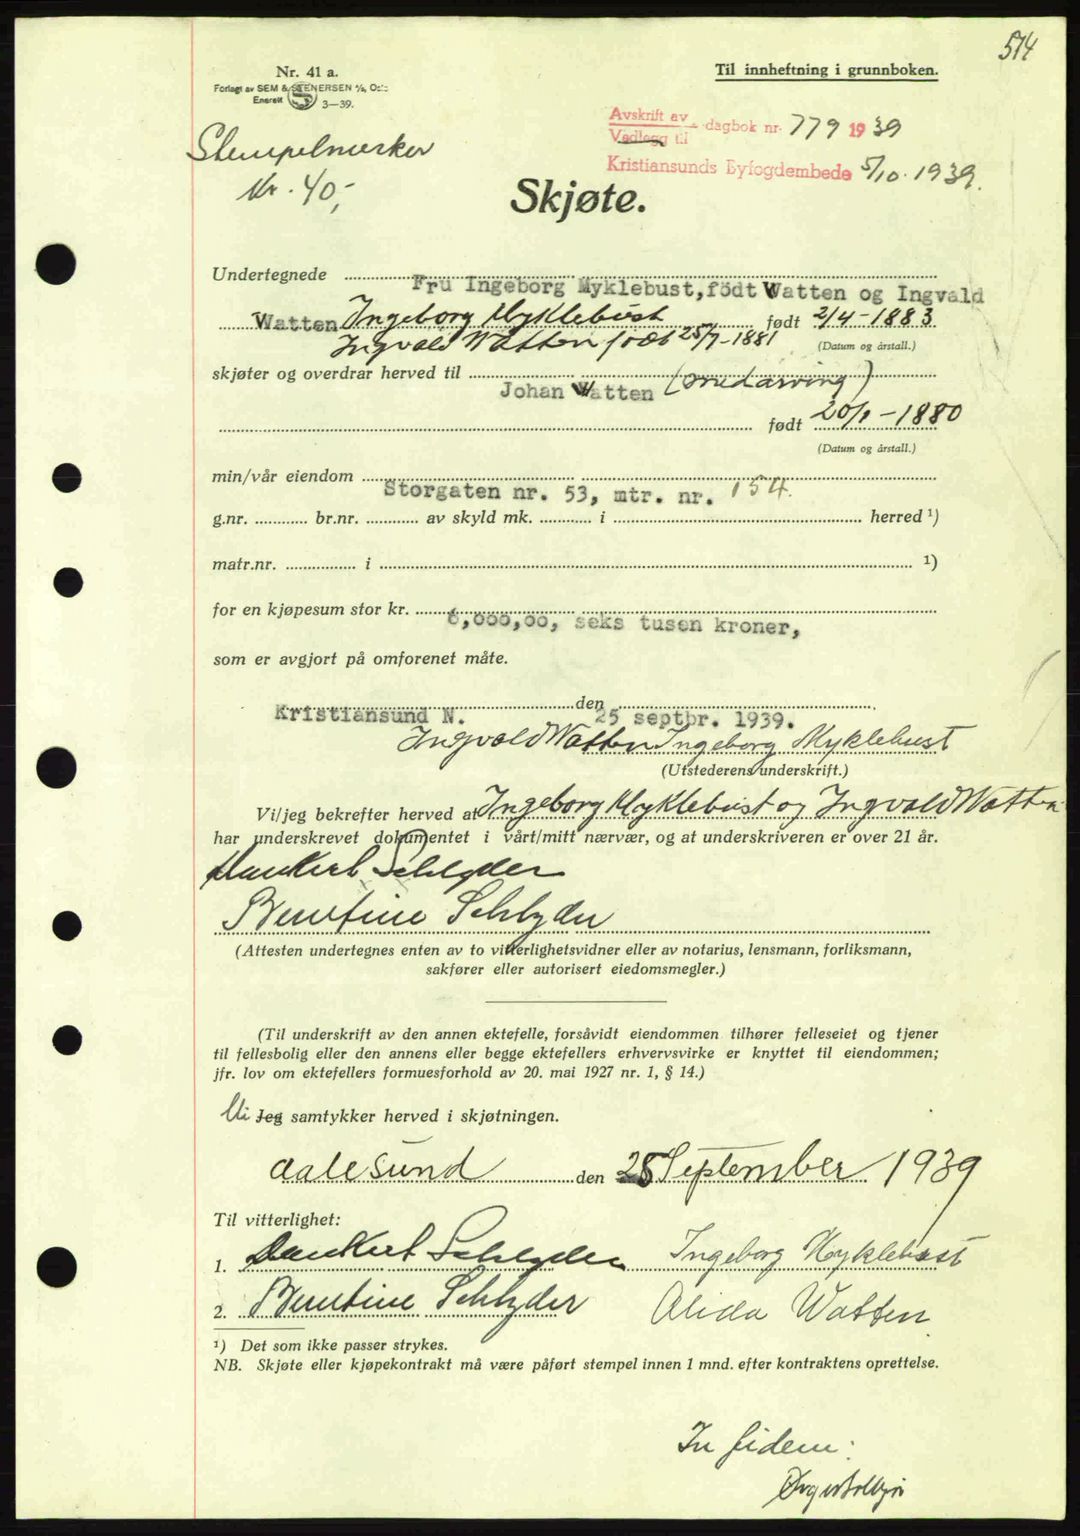 574
Nr. 41 a.
Forlagt av SEM & STENERSEN A/S, Oslo
Enerett 3—39.
Til innheftning i grunnboken.
Avskrift av
Vedlegg til dagbok nr. 779 1939
Kristiansunds Byfogdembede 5/10. 1939.
Stempelmerker
Kr. 40,-
Skjøte.
Undertegnede Fru Ingeborg Myklebust, födt Watten og Ingvald
Watten Ingeborg Myklebust født 2/4-1883
Ingvald Watten födt 25/7-1881 (Datum og årstall.)
skjøter og overdrar herved til Johan Watten (medarving)
født 20/1-1880
(Datum og årstall.)
min/vår eiendom Storgaten nr. 53, mtr. nr. 154.
g.nr. br.nr. av skyld mk. i herred ¹)
matr.nr. i ¹)
for en kjøpesum stor kr. 6,000,00, seks tusen kroner,
som er avgjort på omforenet måte.
Kristiansund N. den 25 septbr. 1939.
Ingvald Watten Ingeborg Myklebust
(Utstederens underskrift.)
Vi/jeg bekrefter herved at Ingeborg Myklebust og Ingvald Watten
har underskrevet dokumentet i vårt/mitt nærvær, og at underskriveren er over 21 år.
Dankert Schlyder
Berntine Schlyder
(Attesten undertegnes enten av to vitterlighetsvidner eller av notarius, lensmann, forliksmann,
sakfører eller autorisert eiedomsmegler.)
(Til underskrift av den annen ektefelle, forsåvidt eiendommen tilhører felleseiet og tjener
til fellesbolig eller den annens eller begge ektefellers erhvervsvirke er knyttet til eiendommen;
jfr. lov om ektefellers formuesforhold av 20. mai 1927 nr. 1, § 14.)
Vi Jeg samtykker herved i skjøtningen.
Aalesund den 28 September 1939
Til vitterlighet:
1. Dankert Schlyder Ingeborg Myklebust
2. Berntine Schlyder Alida Watten
¹) Det som ikke passer strykes.
NB. Skjøte eller kjøpekontrakt må være påført stempel innen 1 mnd. efter kontraktens oprettelse.
In fidem: